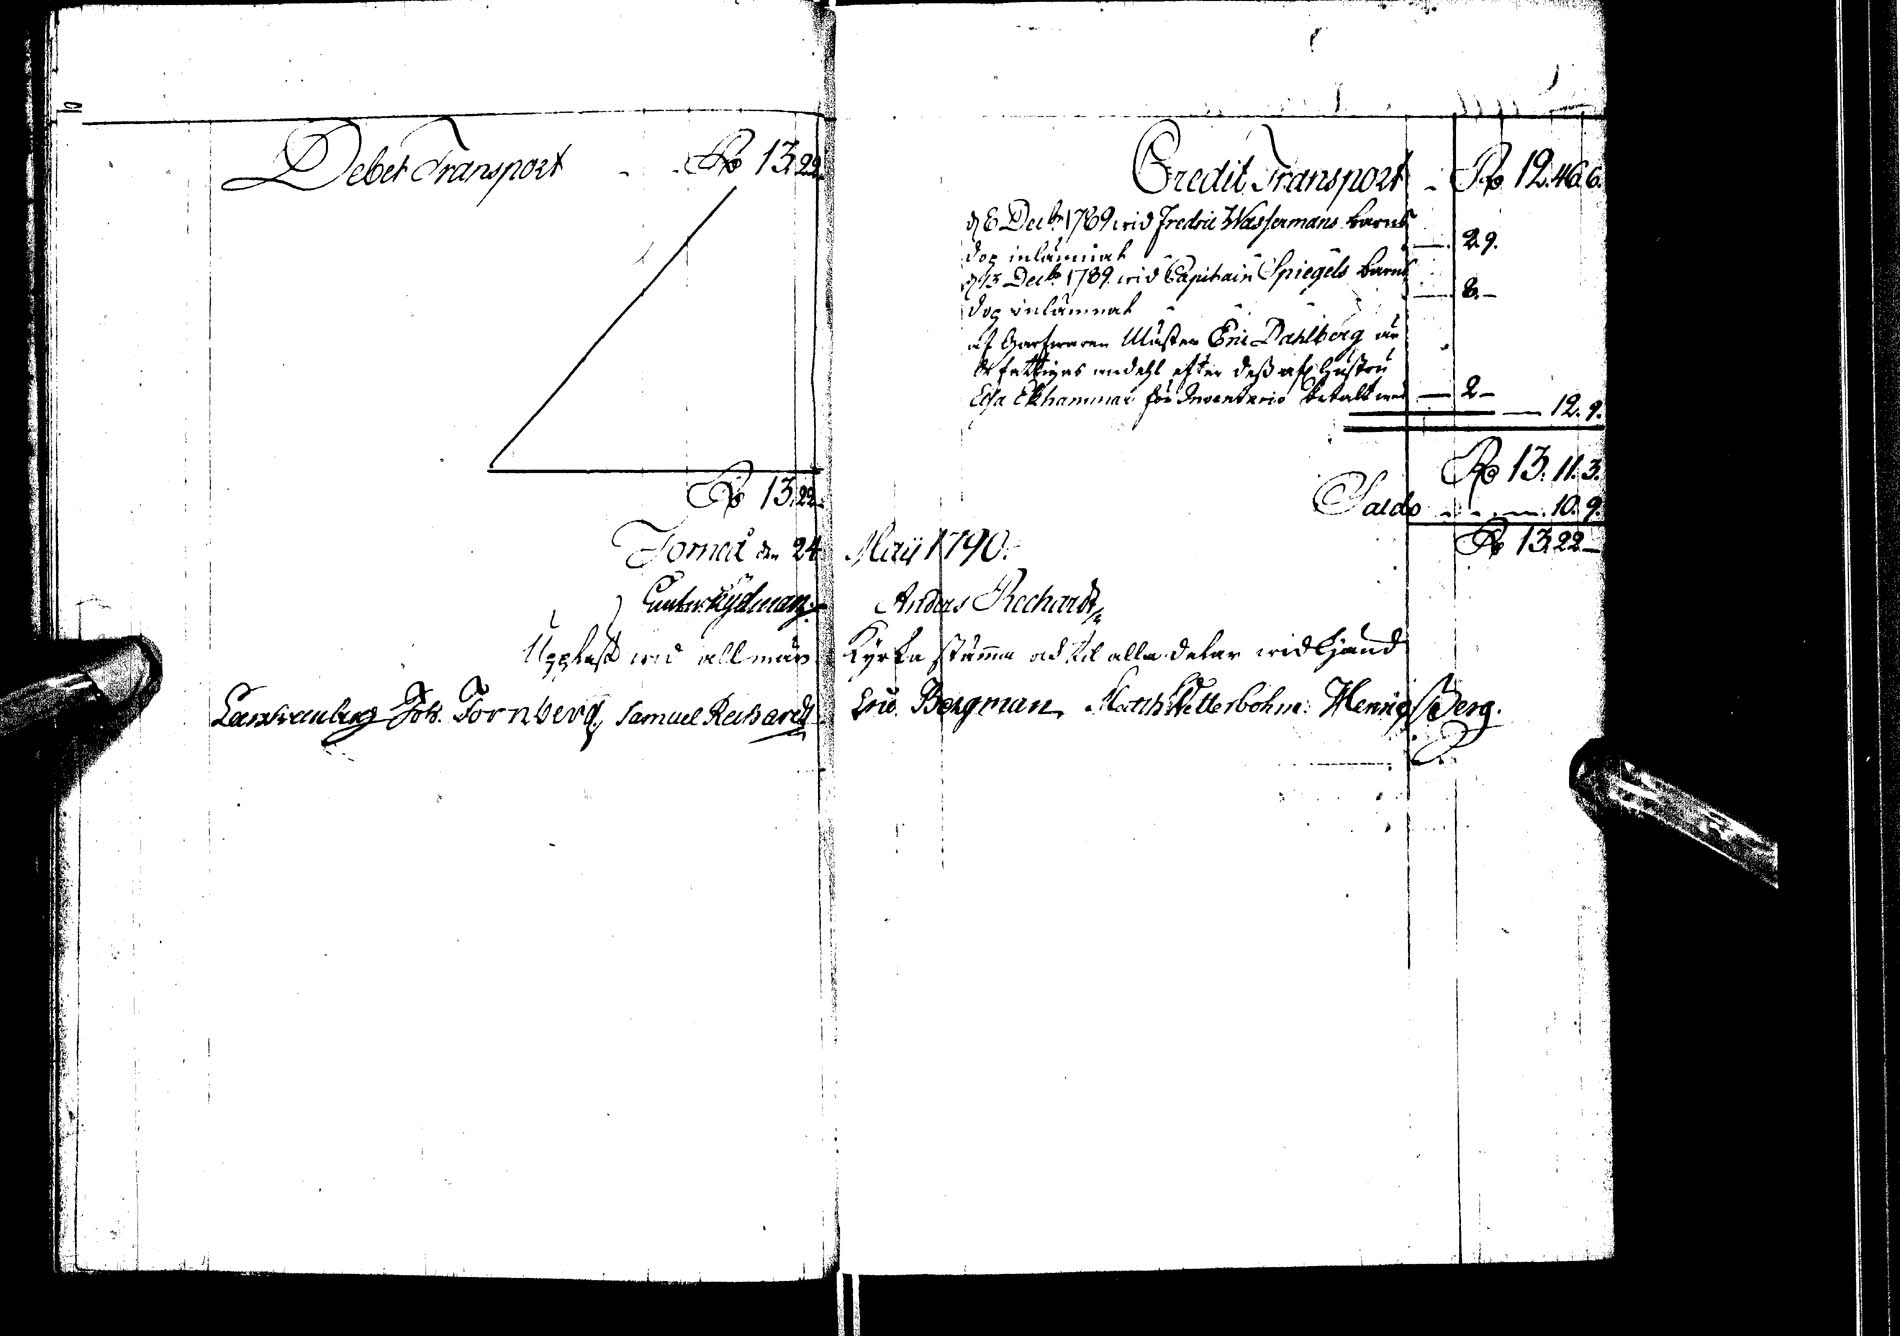 Debet Transport - - Rd 13.22.
Rd 13.22.
Credit Transport - Rd 12.46.6.
d 6 Decbr 1789 wid Fredric Wassermans barns — 2.9.
dop inlämnat
d 13 Decbr 1789 wid Capitain Spiegels barns — 8.—
dop inlämnat
af Garfwaren Mäster Eric Dahlberg är
de fattigas andehl efter dess afl. Hustru
Elsa Ekhammar för Inventario betalt med — 2 —
— 12. 9.
Rd 13. 11. 3.
Saldo - - — 10. 9.
Rd 13.22 —
Torneå den 24 Maij 1790.
Rydman Anders Rechardt
Upläst wid allmän Kyrko stämma och til alla delar widkänd
Joh. Tornberg Samuel Rechardt Eric Bergman Matth: Wetterbohm: Hennig Berg.